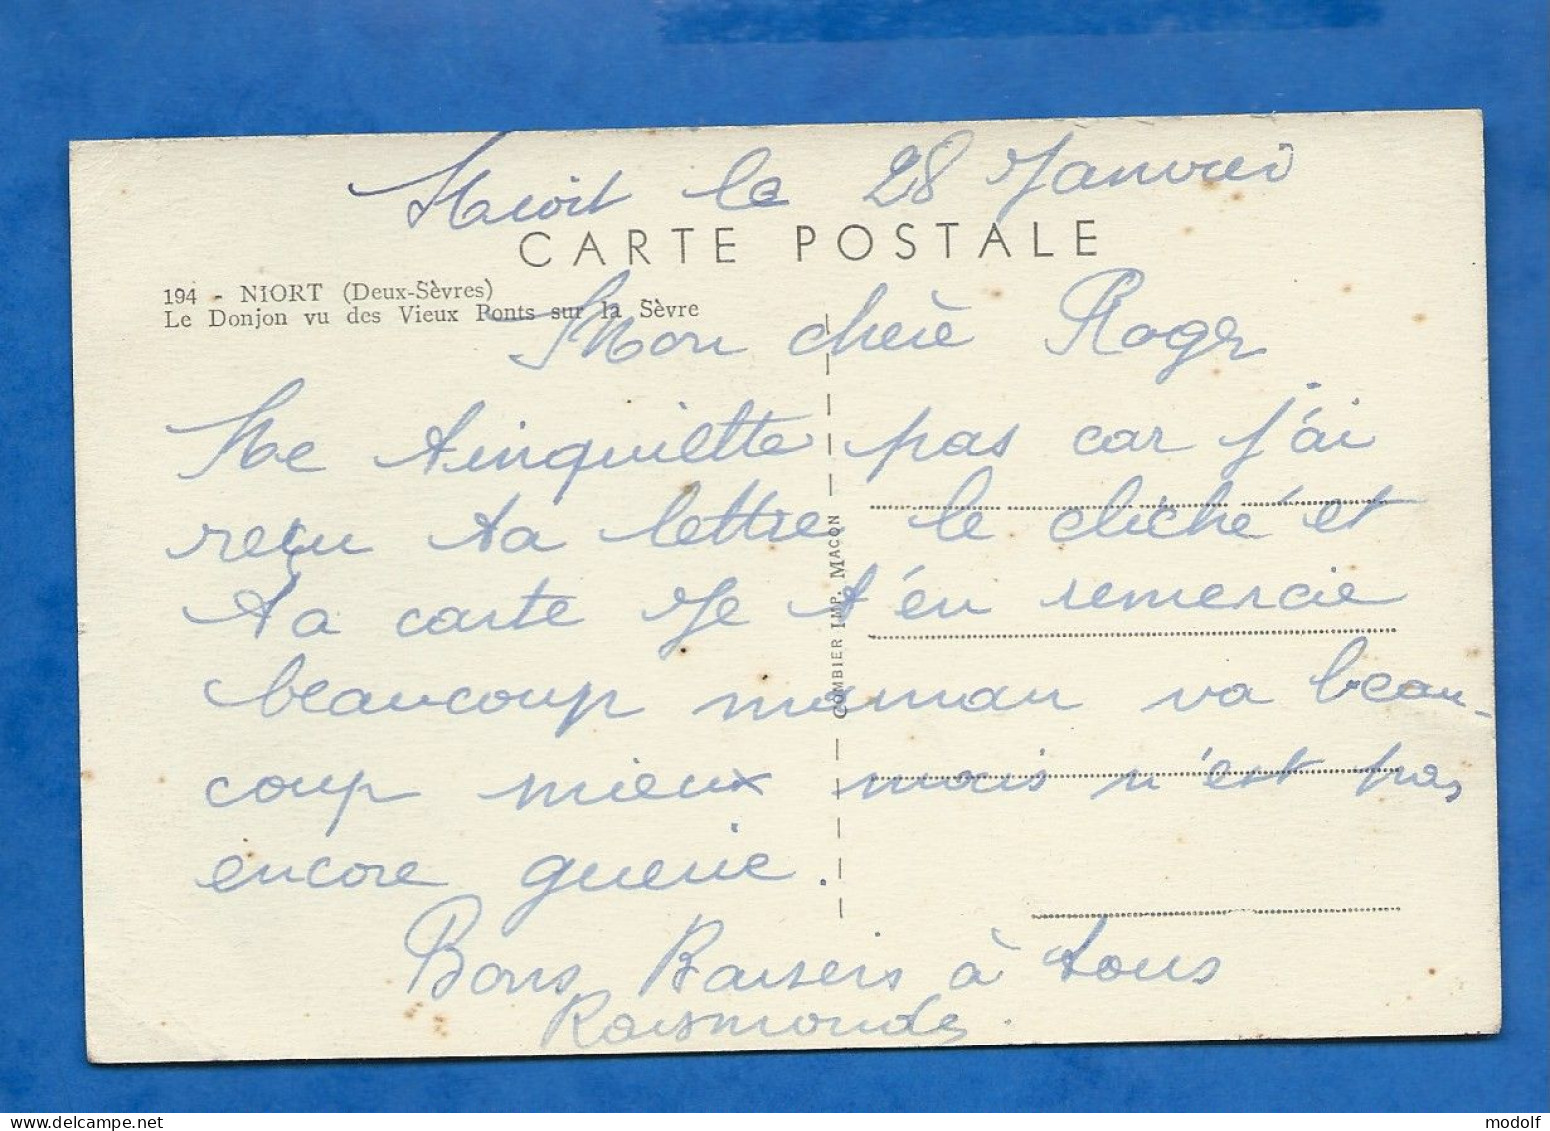 Niort le 28 Janvier
CARTE POSTALE
194 - NIORT (Deux-Sèvres)
Le Donjon vu des Vieux Ponts sur la Sèvre
Mon chère Roger
Ne t'inquiette pas car j'ai
reçu ta lettre le cliché et
ta carte Je t'en remercie
beaucoup maman va beau-
coup mieux mais n'est pas
encore guerie.
Bons Baisers à tous
Raismonde.
COMBIER IMP. MACON
modolf